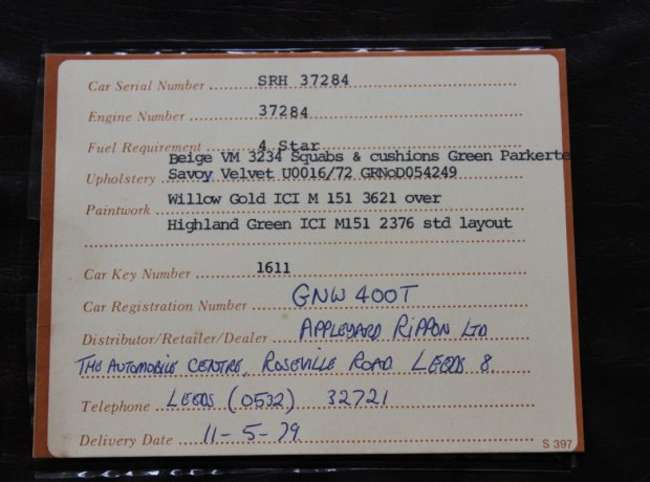 Car Serial Number SRH 37284
Engine Number 37284
Fuel Requirement 4 Star
Beige VM 3234 Squabs & cushions Green Parkerte
Upholstery Savoy Velvet U0016/72 GRNoD054249
Paintwork Willow Gold ICI M 151 3621 over
Highland Green ICI M151 2376 std layout
Car Key Number 1611
Car Registration Number GNW 400T
Distributor/Retailer/Dealer APPLEYARD RIPPON LTD
THE AUTOMOBILE CENTRE, ROSEVILLE ROAD LEEDS 8.
Telephone LEEDS (0532) 32721
Delivery Date 11-5-79
S 397